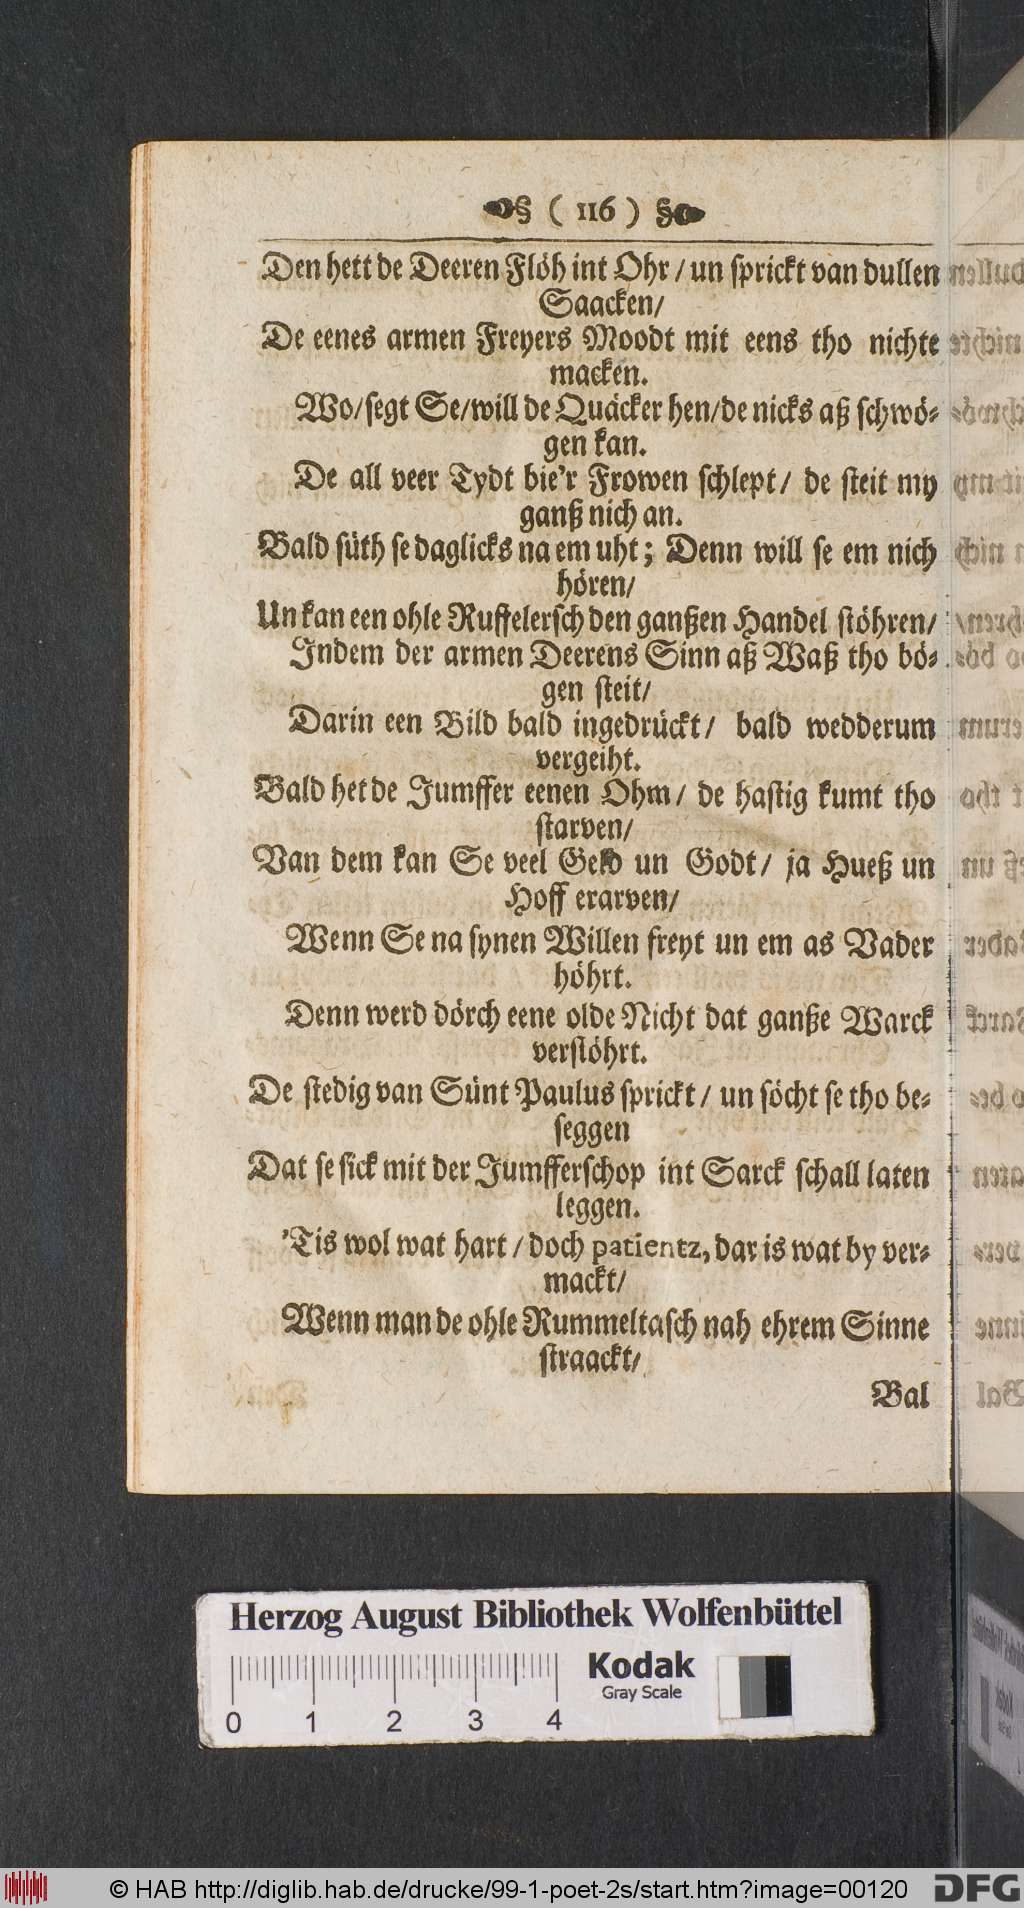 ( 116 )
Den hett de Deeren Flöh int Ohr / un sprickt van dullen
Saacken/
De eenes armen Freyers Moodt mit eens tho nichte
macken.
Wo/segt Se/will de Quäcker hen/de nicks aß schwö-
gen kan.
De all veer Tydt bie'r Frowen schlept/ de steit my
ganß nich an.
Bald süth se daglicks na em uht; Denn will se em nich
hören/
Un kan een ohle Ruffelersch den ganßen Handel stöhren/
Indem der armen Deerens Sinn aß Waß tho bö-
gen steit/
Darin een Bild bald ingedrückt/ bald wedderum
vergeiht.
Bald het de Jumffer eenen Ohm/ de hastig kumt tho
starven/
Van dem kan Se veel Geld un Godt/ ja Hueß un
Hoff erarven/
Wenn Se na synen Willen freyt un em as Vader
höhrt.
Denn werd dörch eene olde Nicht dat ganße Warck
verstöhrt.
De stedig van Sünt Paulus sprickt / un söcht se tho be-
seggen
Dat se sick mit der Jumfferschop int Sarck schall laten
leggen.
'Tis wol wat hart / doch patientz, dar is wat by ver-
mackt/
Wenn man de ohle Rummeltasch nah ehrem Sinne
straackt/
Bal
Herzog August Bibliothek Wolfenbüttel
Kodak
Gray Scale
0 1 2 3 4
© HAB http://diglib.hab.de/drucke/99-1-poet-2s/start.htm?image=00120
DFG